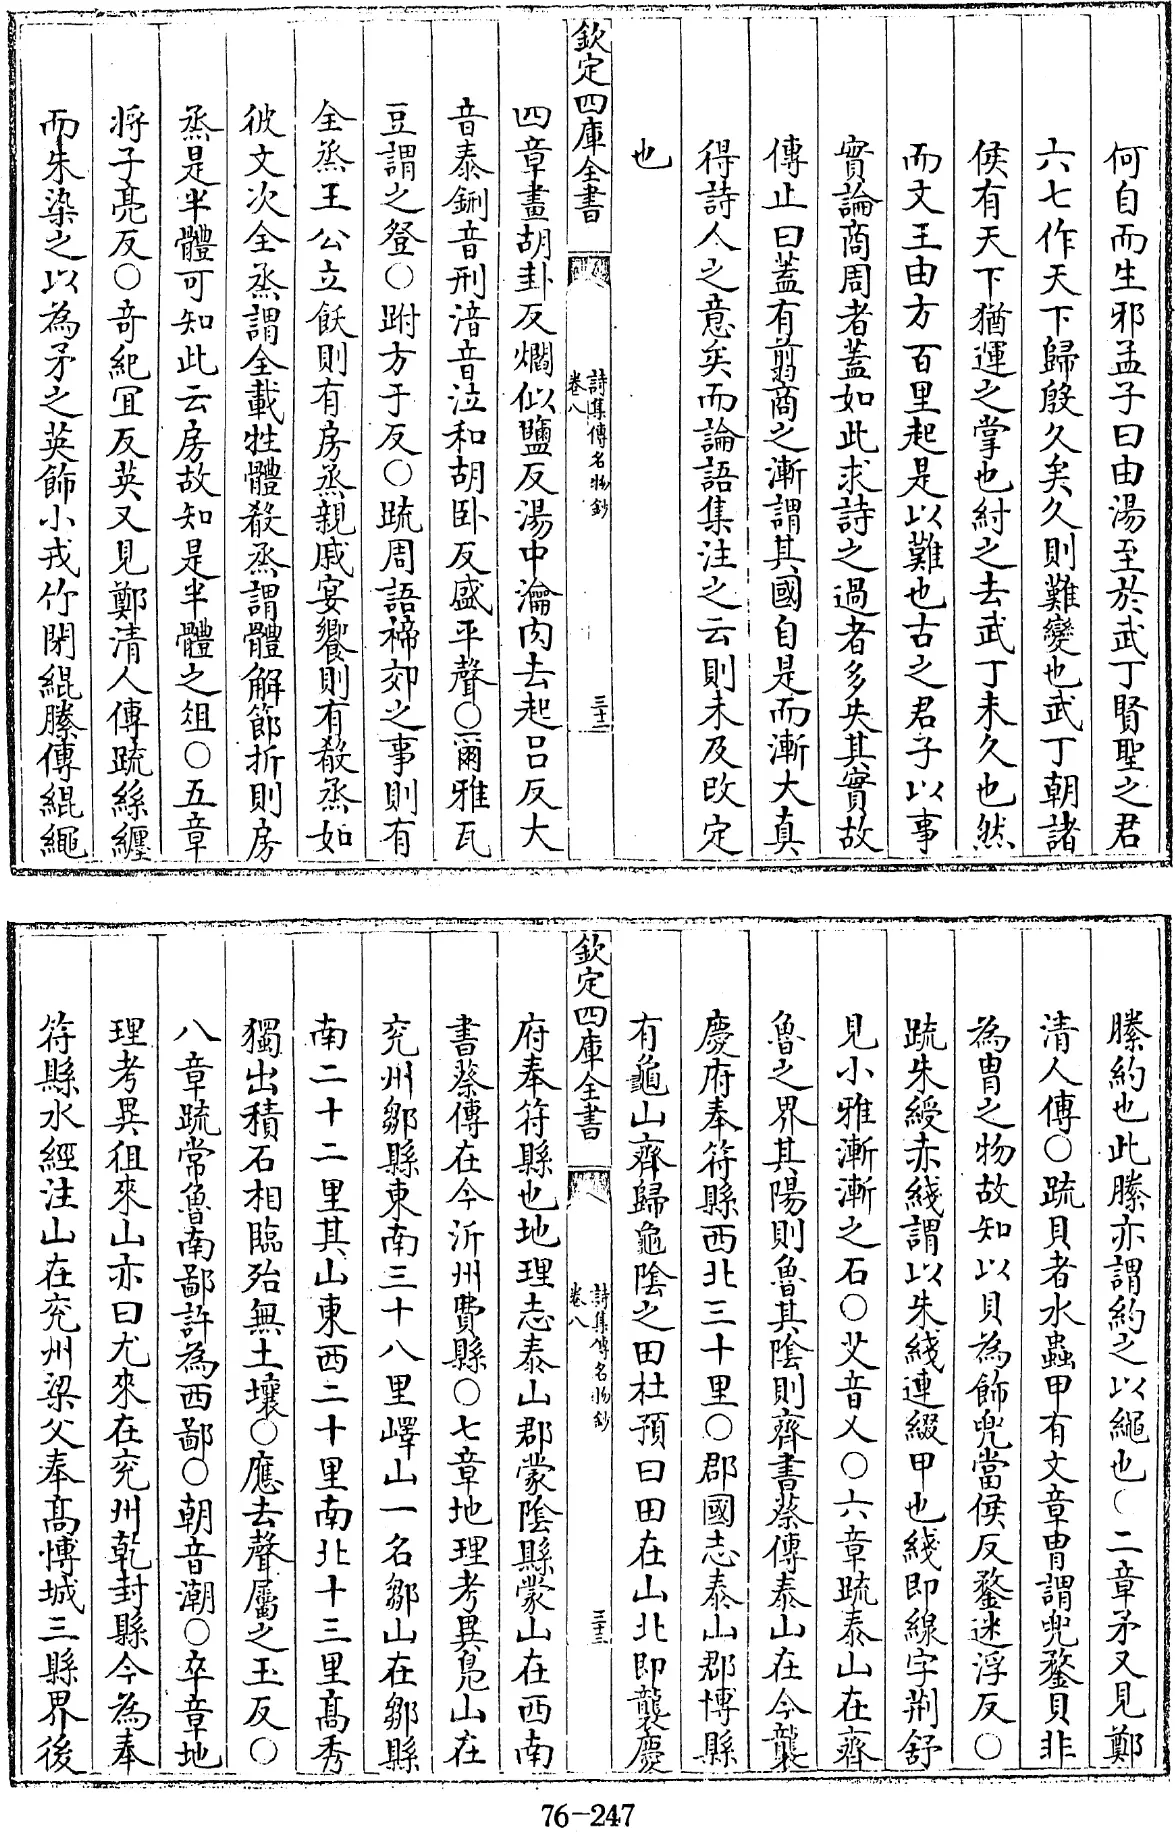 何自而生邪孟子曰由湯至於武丁賢聖之君
六七作天下歸殷久矣久則難變也武丁朝諸
侯有天下猶運之掌也紂之去武丁未久也然
而文王由方百里起是以難也古之君子以事
實論商周者蓋如此求詩之過者多失其實故
傳止曰蓋有翦商之漸謂其國自是而漸大真
得詩人之意矣而論語集注之云則未及改定
也
欽定四庫全書
詩集傳名物鈔
卷八
三十二
四章畫胡卦反爓似鹽反湯中瀹肉去起呂反大
音泰鉶音刑湆音泣和胡卧反盛平聲○爾雅瓦
豆謂之登○跗方于反○疏周語禘郊之事則有
全烝王公立飫則有房烝親戚宴饗則有殽烝如
彼文次全烝謂全載牲體殽烝謂體解節折則房
烝是半體可知此云房故知是半體之俎○五章
將子亮反○奇紀宜反英又見鄭清人傳疏絲纏
而朱染之以為矛之英飾小戎竹閉緄縢傳緄繩
縢約也此縢亦謂約之以繩也○二章矛又見鄭
清人傳○疏貝者水蟲甲有文章胄謂兜鍪貝非
為胄之物故知以貝為飾兜當侯反鍪迷浮反○
疏朱綬赤綫謂以朱綫連綴甲也綫即線字荆舒
見小雅漸漸之石○艾音乂○六章疏泰山在齊
魯之界其陽則魯其陰則齊書蔡傳泰山在今襲
慶府奉符縣西北三十里○郡國志泰山郡博縣
有龜山齊歸龜陰之田杜預曰田在山北即襲慶
欽定四庫全書
詩集傳名物鈔
卷八
三十三
府奉符縣也地理志泰山郡蒙陰縣蒙山在西南
書蔡傳在今沂州費縣○七章地理考異鳬山在
兖州鄒縣東南三十八里嶧山一名鄒山在鄒縣
南二十二里其山東西二十里南北十三里高秀
獨出積石相臨殆無土壤○應去聲屬之玉反○
八章疏常魯南鄙許為西鄙○朝音潮○卒章地
理考異徂來山亦曰尤來在兖州乾封縣今為奉
符縣水經注山在兖州梁父奉高博城三縣界後
76-247